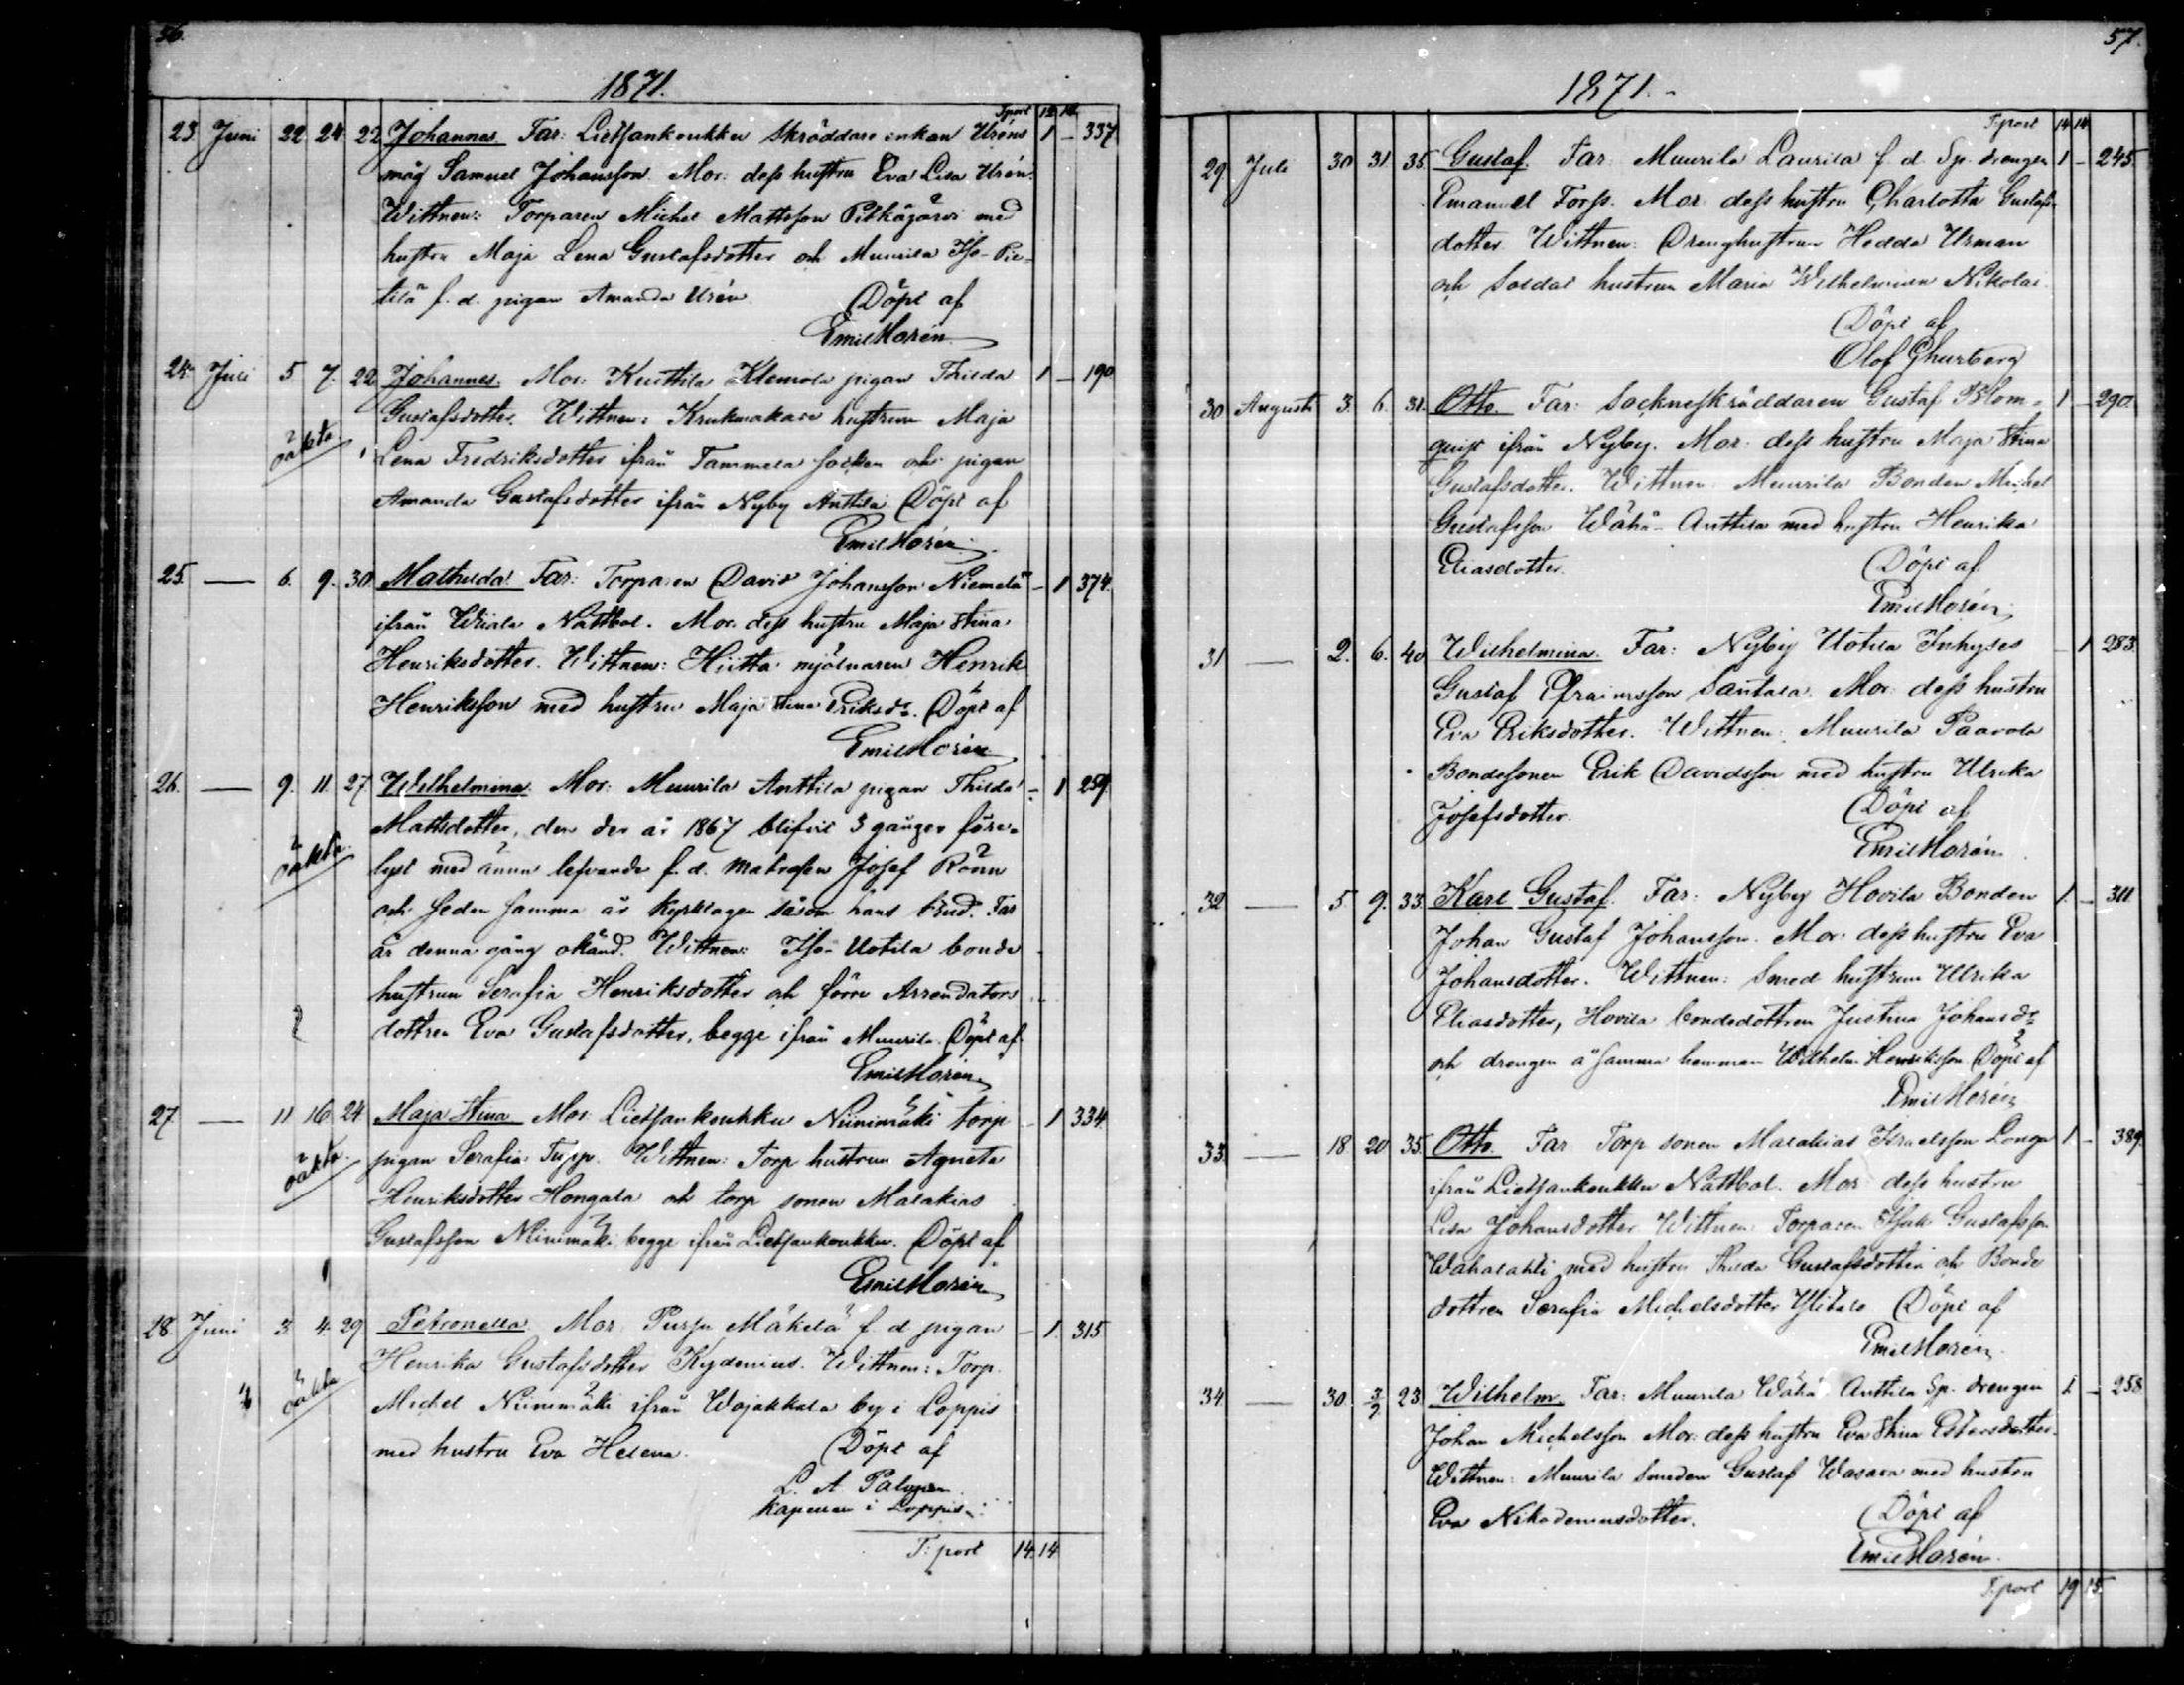 56.
1871.
T.port 12 10
23 Juni 22 24 22 Johannes. Far: Lietsankoukku Skräddare enkan Uréns 1 - 337
måg Samuel Johansson. Mor: dess hustru Eva Lisa Urén.
Wittnen: Torparen Michel Mattsson Pitkäjärvi med
hustru Maja Lena Gustafsdotter och Muurila Iso-Pie-
tilä f. d. pigan Amanda Urén. Döpt af
Emil Horén
24. Juli 5 7. 22 Johannes. Mor: Kuittila Klemola pigan Thilda 1 - 190
Gustafsdotter. Wittnen: Krukmakare hustrun Maja
oäkta Lena Fredriksdotter ifrån Tammela socken och pigan
Amanda Gustafsdotter ifrån Nyby Anttila Döpt af
Emil Horén
25. — 6. 9. 30 Mathilda. Far: Torparen David Johansson Niemelä - 1 374.
ifrån Wiiala Nättbol. Mor: dess hustru Maja Stina
Henriksdotter. Wittnen: Hiitta mjölnaren Henrik
Henriksson med hustru Maja Stina Eriksdr. Döpt af
Emil Horén
26. — 9. 11. 27 Wilhelmina. Mor: Muurila Anttila pigan Thilda - 1 259
Mattsdotter, den der år 1867 blifvit 3 gånger före-
oäkta. lyst med ännu lefvande f. d. Matrosen Josef Rönn
och sedan samma år kyrktagen såsom hans brud. Far
är denna gång okänd. Wittnen: Iso-Uotila bonde
hustrun Serafia Henriksdotter och förre Arrendators
dottren Eva Gustafsdotter, begge ifrån Muurila. Döpt af
Emil Horén
27. — 11 16 24 Maja Stina. Mor: Lietsankoukku Niinimäki torp - 1 334.
oäkta. pigan Serafia Tupp. Wittnen: Torp hustrun Agneta
Henriksdotter Hongala och torp sonen Malakias
Gustafsson Niinimäki begge ifrån Lietsankoukku. Döpt af
Emil Horén
28. Juni 3. 4. 29 Petronella. Mor: Pursu Mäkelä f. d pigan - 1. 315
Henrika Gustafsdotter Kydenius. Wittnen: Torp.
oäkta Michel Niinimäki ifrån Wojakkala by i Loppis
med hustru Eva Helena. Döpt af
L. A. Palmen
Kapellan i Loppis
T: port 14. 14
57.
1871.
T.port 14 14
29 Juli 30 31. 35. Gustaf. Far: Muurila Laurila f d. Sp. drengen 1 - 245.
Emanuel Forss. Mor: dess hustru Charlotta Gustafs-
dotter. Wittnen: Drenghustrun Hedda Urman
och Soldat hustrun Maria Wilhelmina Nikolai.
Döpt af
Olof Thurberg
30 Augusti 3. 6. 31. Otto. Far: Sockneskräddaren Gustaf Blom- 1 - 290.
quist ifrån Nyby. Mor: dess hustru Maja Stina
Gustafsdotter. Wittnen: Muurila Bonden Michel
Gustafsson Wähä-Anttila med hustru Henrika
Eliasdotter. Döpt af
Emil Horén
31 — 2. 6. 40 Wilhelmina. Far: Nyby Uotila Inhyses - 1 283.
Gustaf Efraimsson Santala. Mor: dess hustru
Eva Eriksdotter. Wittnen: Muurila Paavola
Bondesonen Erik Davidsson med hustru Ulrika
Josefsdotter. Döpt af
Emil Horén
32 — 5 9. 33. Karl Gustaf. Far: Nyby Hovila Bonden 1. - 311.
Johan Gustaf Johansson. Mor: dess hustru Eva
Johansdotter. Wittnen: Smed hustrun Ulrika
Eliasdotter, Hovila bondedottren Justina Johansdr
och drengen å samma hemman Wilhelm Henriksson Döpt af
Emil Horén
33 — 18 20 35. Otto. Far: Torp sonen Malakias Israelsson Longa 1 - 389.
ifrån Lietsankoukku Nättbol. Mor: dess hustru
Lisa Johansdotter Wittnen: Torparen Isak Gustafsson
Wähälahti med hustru Thilda Gustafsdotter och Bonde
dottren Serafia Michelsdotter Ylitalo Döpt af
Emil Horén
34 — 30. 3/9. 23 Wilhelm. Far: Muurila Wähä Anttila Sp. drengen 1. - 258
Johan Michelsson Mor: dess hustru Eva Stina Estersdotter.
Wittnen: Muurila Smeden Gustaf Wasara med hustru
Eva Nikodemusdotter. Döpt af
Emil Horén.
T.port 19 15